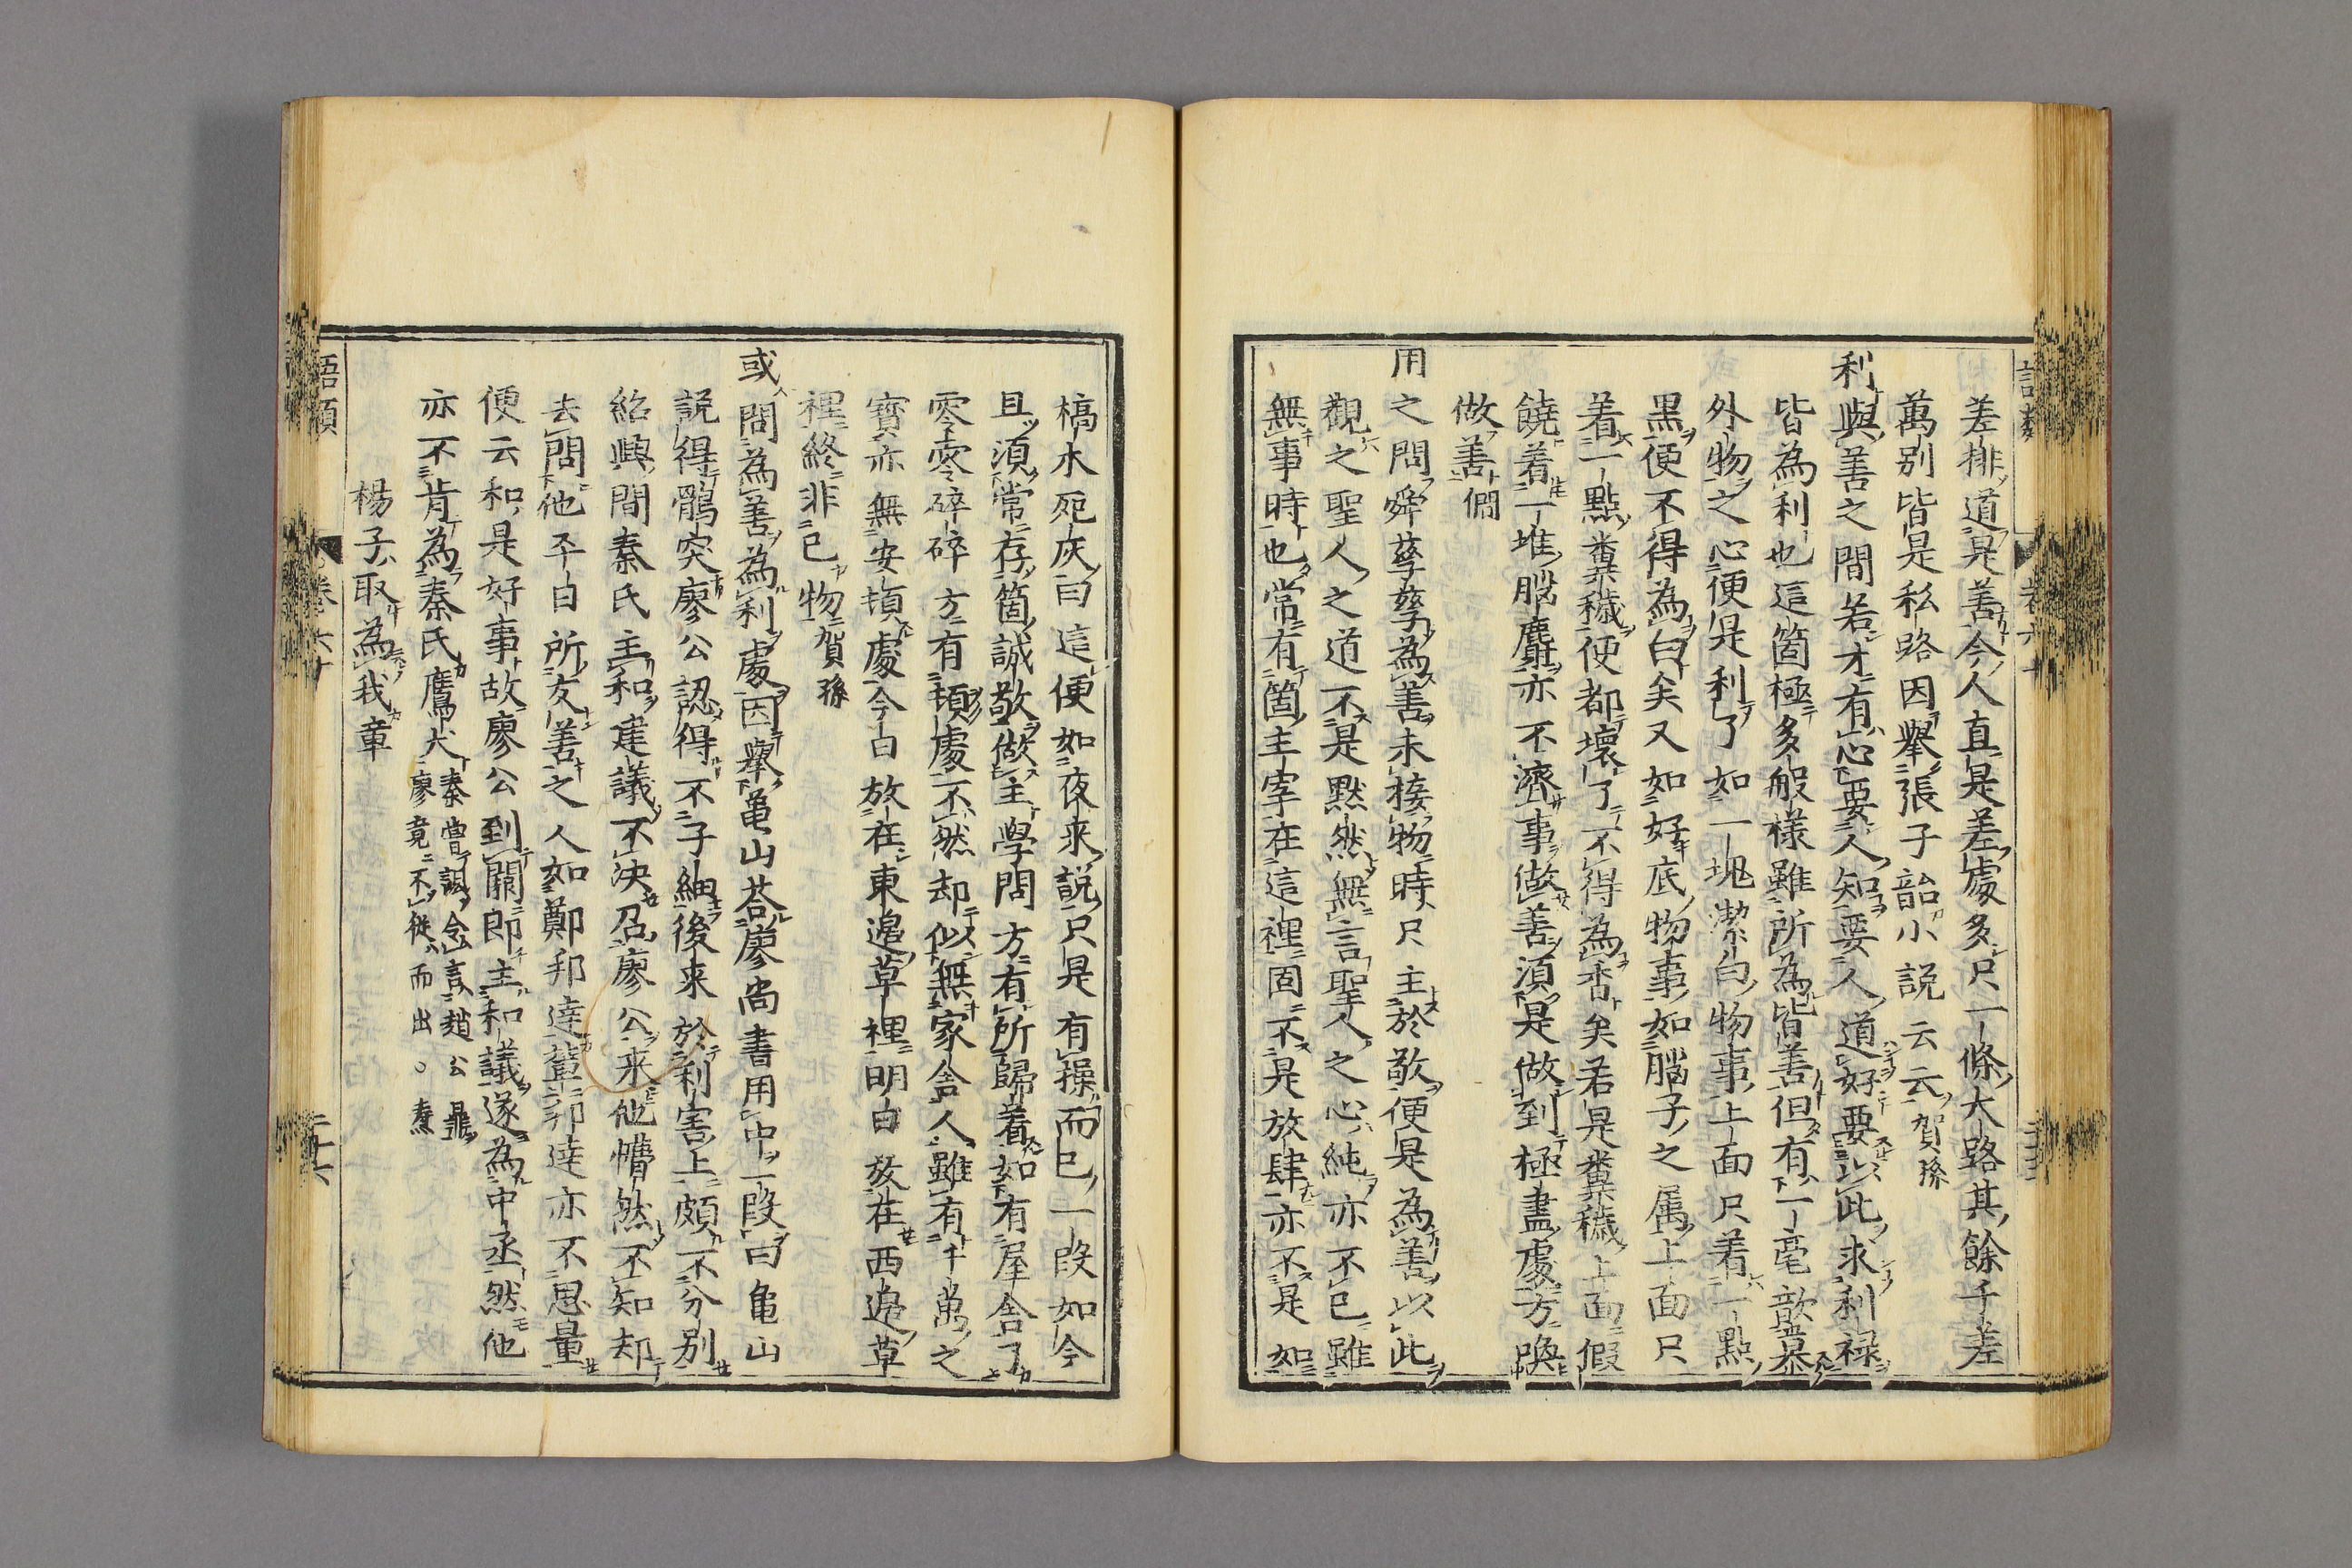 差排道是善今人直是差處多只一條大路其餘千差
萬別皆是私路因舉張子韶小説云云賀孫
利與善之間若才有心要人知要人道好要以此求利禄
皆為利也這箇極多般樣雖所為皆善但有一毫歆慕
外物之心便是利了如一塊潔白物事上面只着一點
黒便不得為白矣又如好底物事如腦子之属上面只
着一點糞穢便都壞了不得為香矣若是糞穢上面假
饒着一堆腦麝亦不濟事做善須是做到極盡處方喚
做善僩
用之問舜孳孳為善未接物時只主於敬便是為善以此
觀之聖人之道不是黙然無言聖人之心純亦不已雖
無事時也常有箇主宰在這裡固不是放肆亦不是如
槁木死灰曰這便如夜来説只是有操而已一段如今
且須常存箇誠敬做主學問方有所歸着如有屋舎了
零零碎碎方有頓處不然却似無家舎人雖有千萬之
寳亦無安頓處今日放在東邉草裡明日放在西邉草
裡終非已物賀孫
或問為善為利處因舉龜山荅廖尚書用中一段曰龜山
説得鶻突廖公認得不子細後来於利害上頗不分別
紹興間秦氏主和建議不決召廖公来他懵然不知却
去問他平日所友善之人如鄭邦逹輩邦逹亦不思量
便云和是好事故廖公到闕即主和議遂為中丞然他
亦不肯為秦氏鷹犬秦嘗諷令言趙公鼎廖竟不従而出○燾
楊子取為我章
語類
卷六十